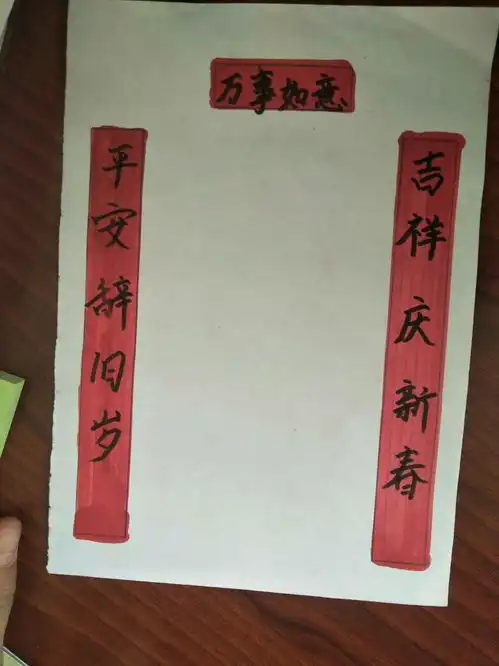 万事如意
平安辞旧岁
吉祥庆新春